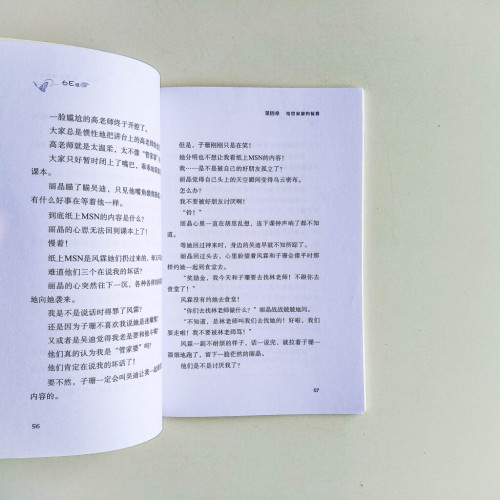 一脸尴尬的高老师终于开腔了。
大家总是惯性地把讲台上的高老师
高老师就是太温柔，太不像“管家婆”
大家只好暂时闭上了嘴巴，乖乖地
课本。
丽晶瞄了瞄吴迪，只见他嘴角
有什么好事在等着他一样。
到底纸上MSN的内容是什么？
丽晶的心思无法回到课本上了！
慢着！
纸上MSN是风霖她们捎过来的，
难道他们三个在说我的坏话？
丽晶的心突然往下一沉，各种各样
地向她袭来。
我是不是说话时得罪了风霖？
还是因为子珊不喜欢我说她是
又或者是吴迪觉得我老是要和他
他们真的认为我是“管家婆”吗？
他们肯定在说我的坏话了！
要不然，子珊一定会叫吴迪让我一起
内容的。
56
第四章 给您家豌豆智囊
但是，子珊刚刚只是在笑！
她分明也不想让我看纸上MSN的内容！
我……是不是被自己的好朋友孤立了？
丽晶觉得自己头上的天空瞬间变得乌云密布。
怎么办？
我不要被好朋友讨厌啊！
“铃！”
丽晶心里一直在胡思乱想，连下课钟声响了都不知
道。
等她回过神来时，身边的吴迪早就不知所踪了。
丽晶回过头去，心里盼望着风霖和子珊会像平时那
样约她一起到食堂去。
“奖励金，我今天和子珊要去找林老师！不跟你去
食堂了！”
风霖没有约她去食堂！
“你们去找林老师做什么？”丽晶战战兢兢地问。
“不知道，是林老师叫我们去找她的！好啦，我们
要走啦！我不要被林老师骂！”
风霖一副不耐烦的样子，话一说完，就拉着子珊一
溜烟地跑了，留下一脸茫然的丽晶。
他们是不是讨厌我了？
57